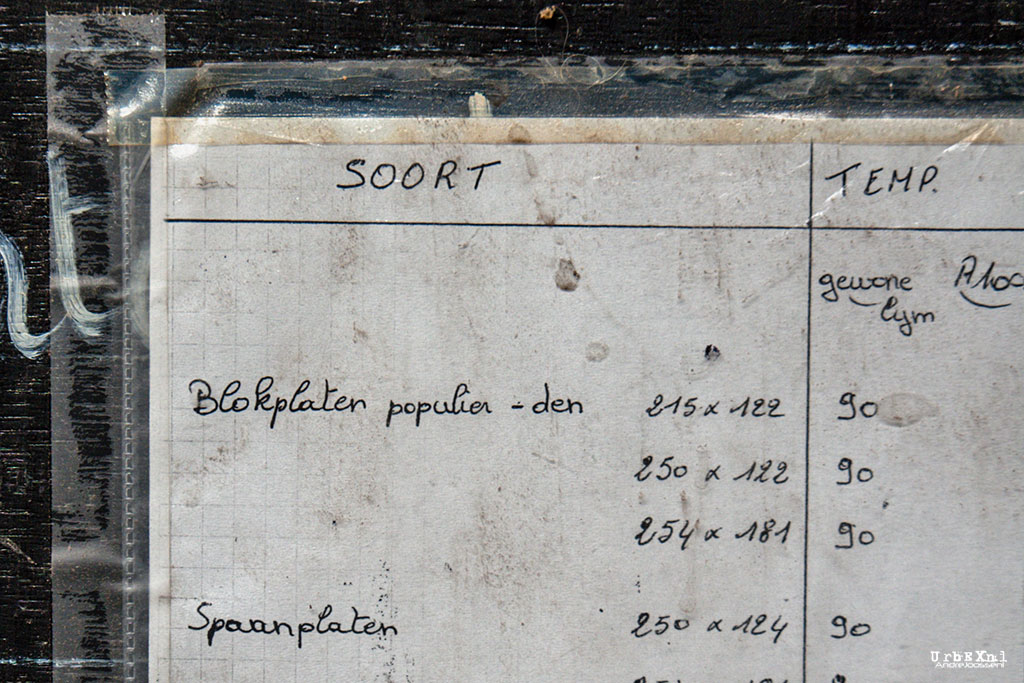 SOORT TEMP.
gewone
lym
Blokplaten populier - den 215 x 122 90
250 x 122 90
254 x 181 90
Spaanplaten 250 x 124 90
UrbEXnl